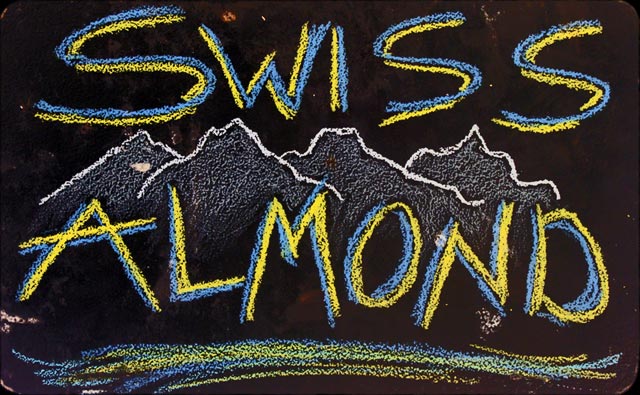 SWISS
ALMOND